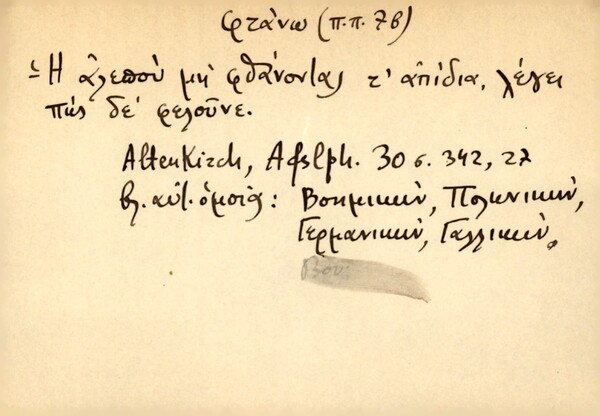 φτάνω (π.π. 7β)
Ἡ ἀλεποῦ μὴ φθάνοντας τ' ἀπίδια, λέγει
πὼς δὲ φελοῦνε.
Altenkirch, Afslph. 30 σ. 342, 27
βλ. αὐτ. ὁμοίας: Βοημικήν, Πολωνικήν,
Γερμανικήν, Γαλλικήν.
Βου